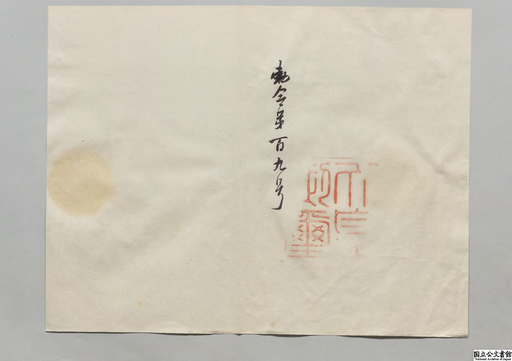 勅令第百九号
国立公文書館
National Archives of Japan